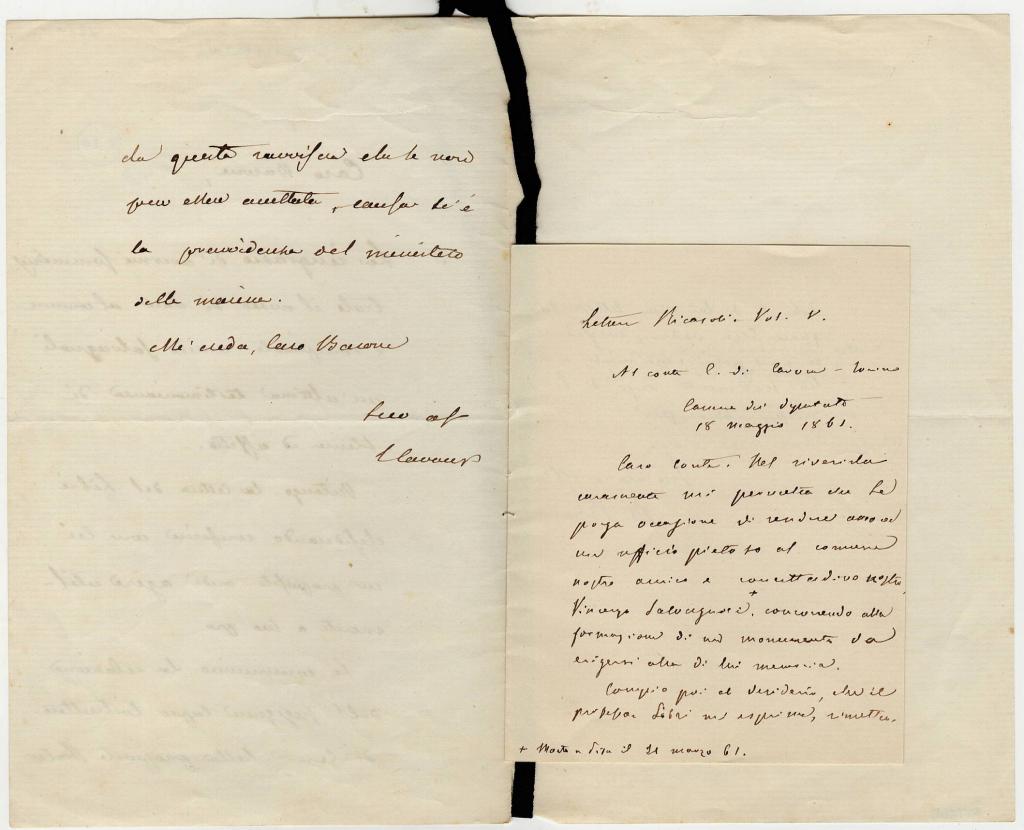 da questa ravviserà che se non
può essere accettata, causa si è
la previdenza del ministero
della marina.
Mi creda, Caro Barone
Suo aff
C Cavour
Lettere Ricasoli. Vol. V.
Al conte C. di Cavour - Torino
Camera dei Deputati
18 maggio 1861.
Caro Conte. Nel riverirla
caramente mi permetta che Le
porga occasione di rendere ancora
un ufficio pietoso al comune
nostro amico e concittadino nostro
Vincenzo Salvagnoli +, concorrendo alla
formazione di un monumento da
erigersi alla di lui memoria.
Compio poi al desiderio, che il
professor Libri mi esprime, rimetten-
+ Morto a Pisa il 21 marzo 61.